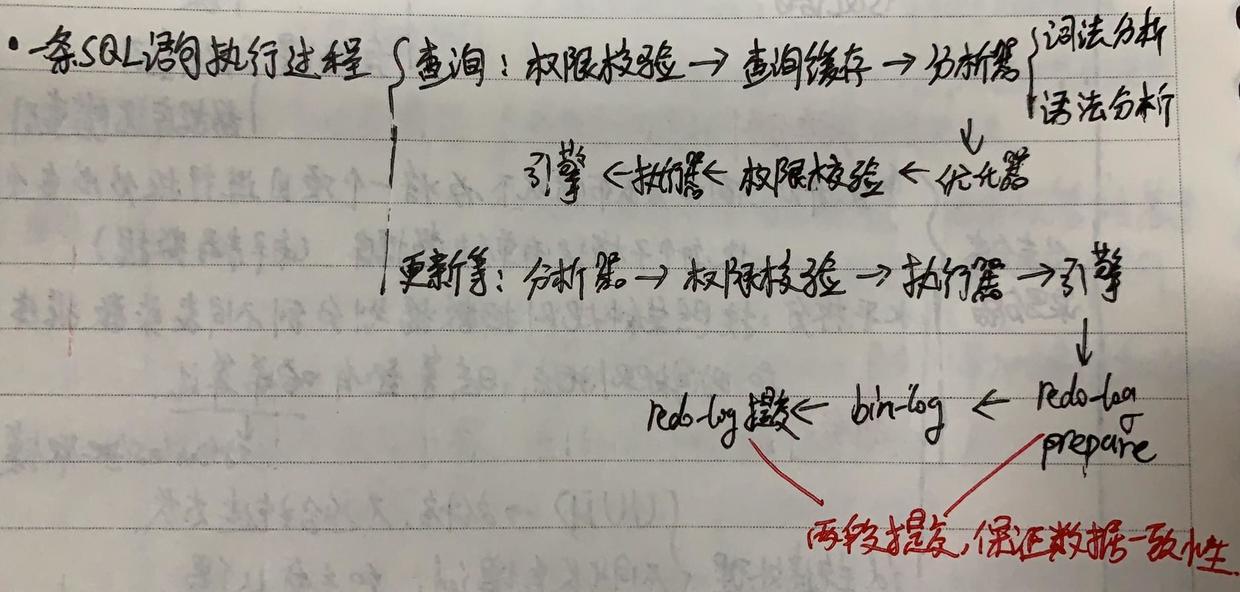 ·一条SQL语句执行过程 { 查询：权限校验 → 查询缓存 → 分析器 { 词法分析
语法分析
↓
引擎 ← 执行器 ← 权限校验 ← 优化器
更新等：分析器 → 权限校验 → 执行器 → 引擎
↓
redo-log 提交 ← bin-log ← redo-log
prepare
两段提交，保证数据一致性.